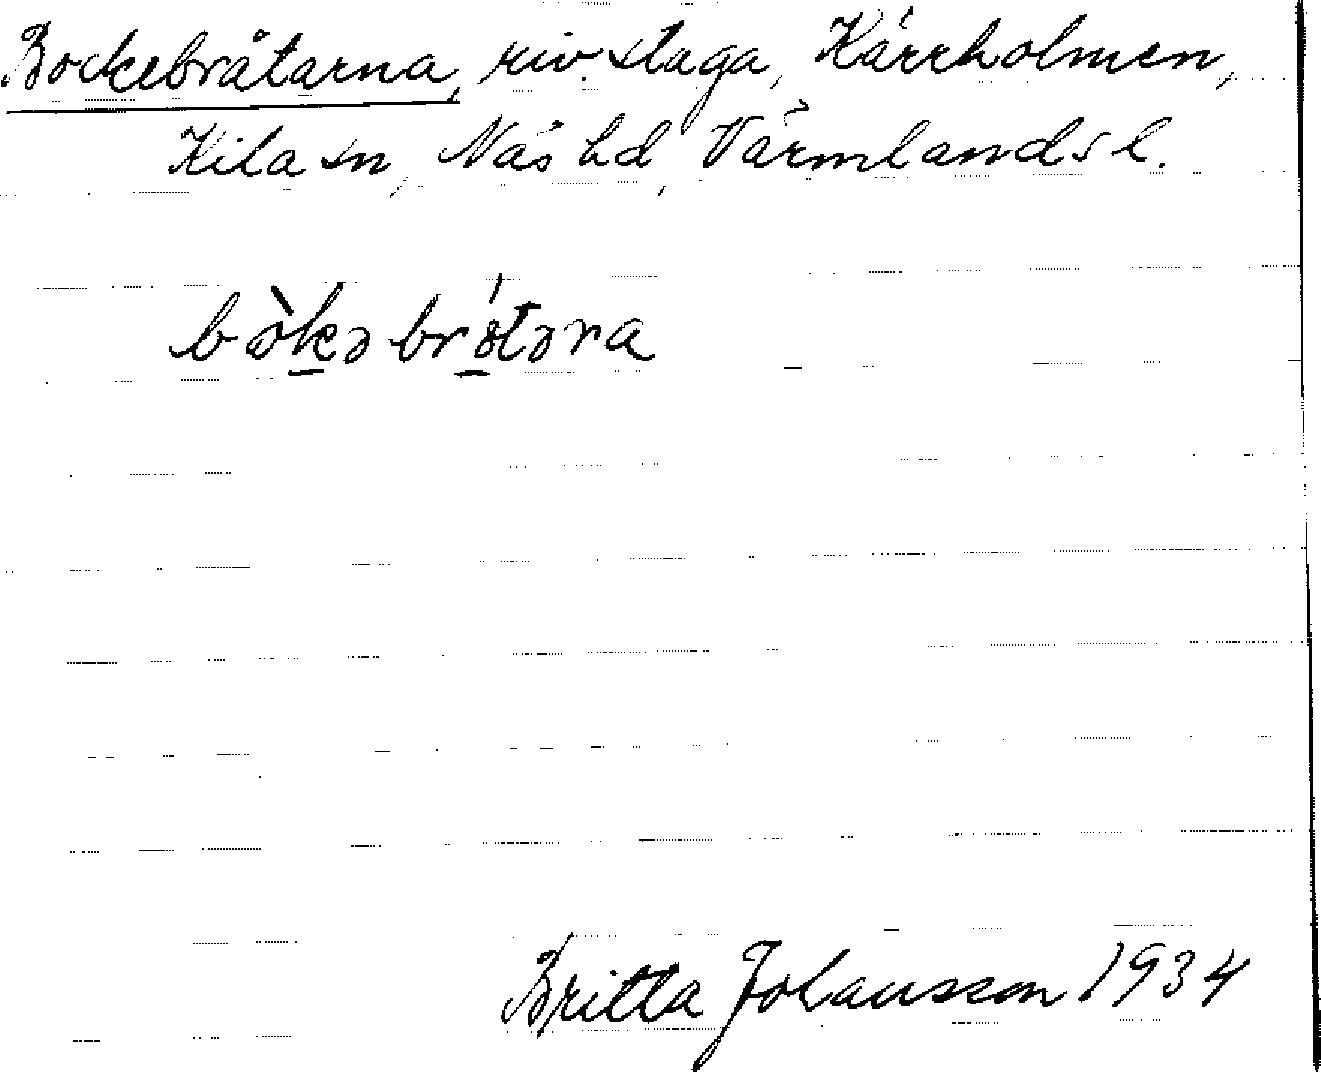 Bockebråtarna, riv. slaga, Kärrholmen,
Kila sn, Näs hd, Värmlands l.
bòkə brǻtəra
Britta Johansson 1934